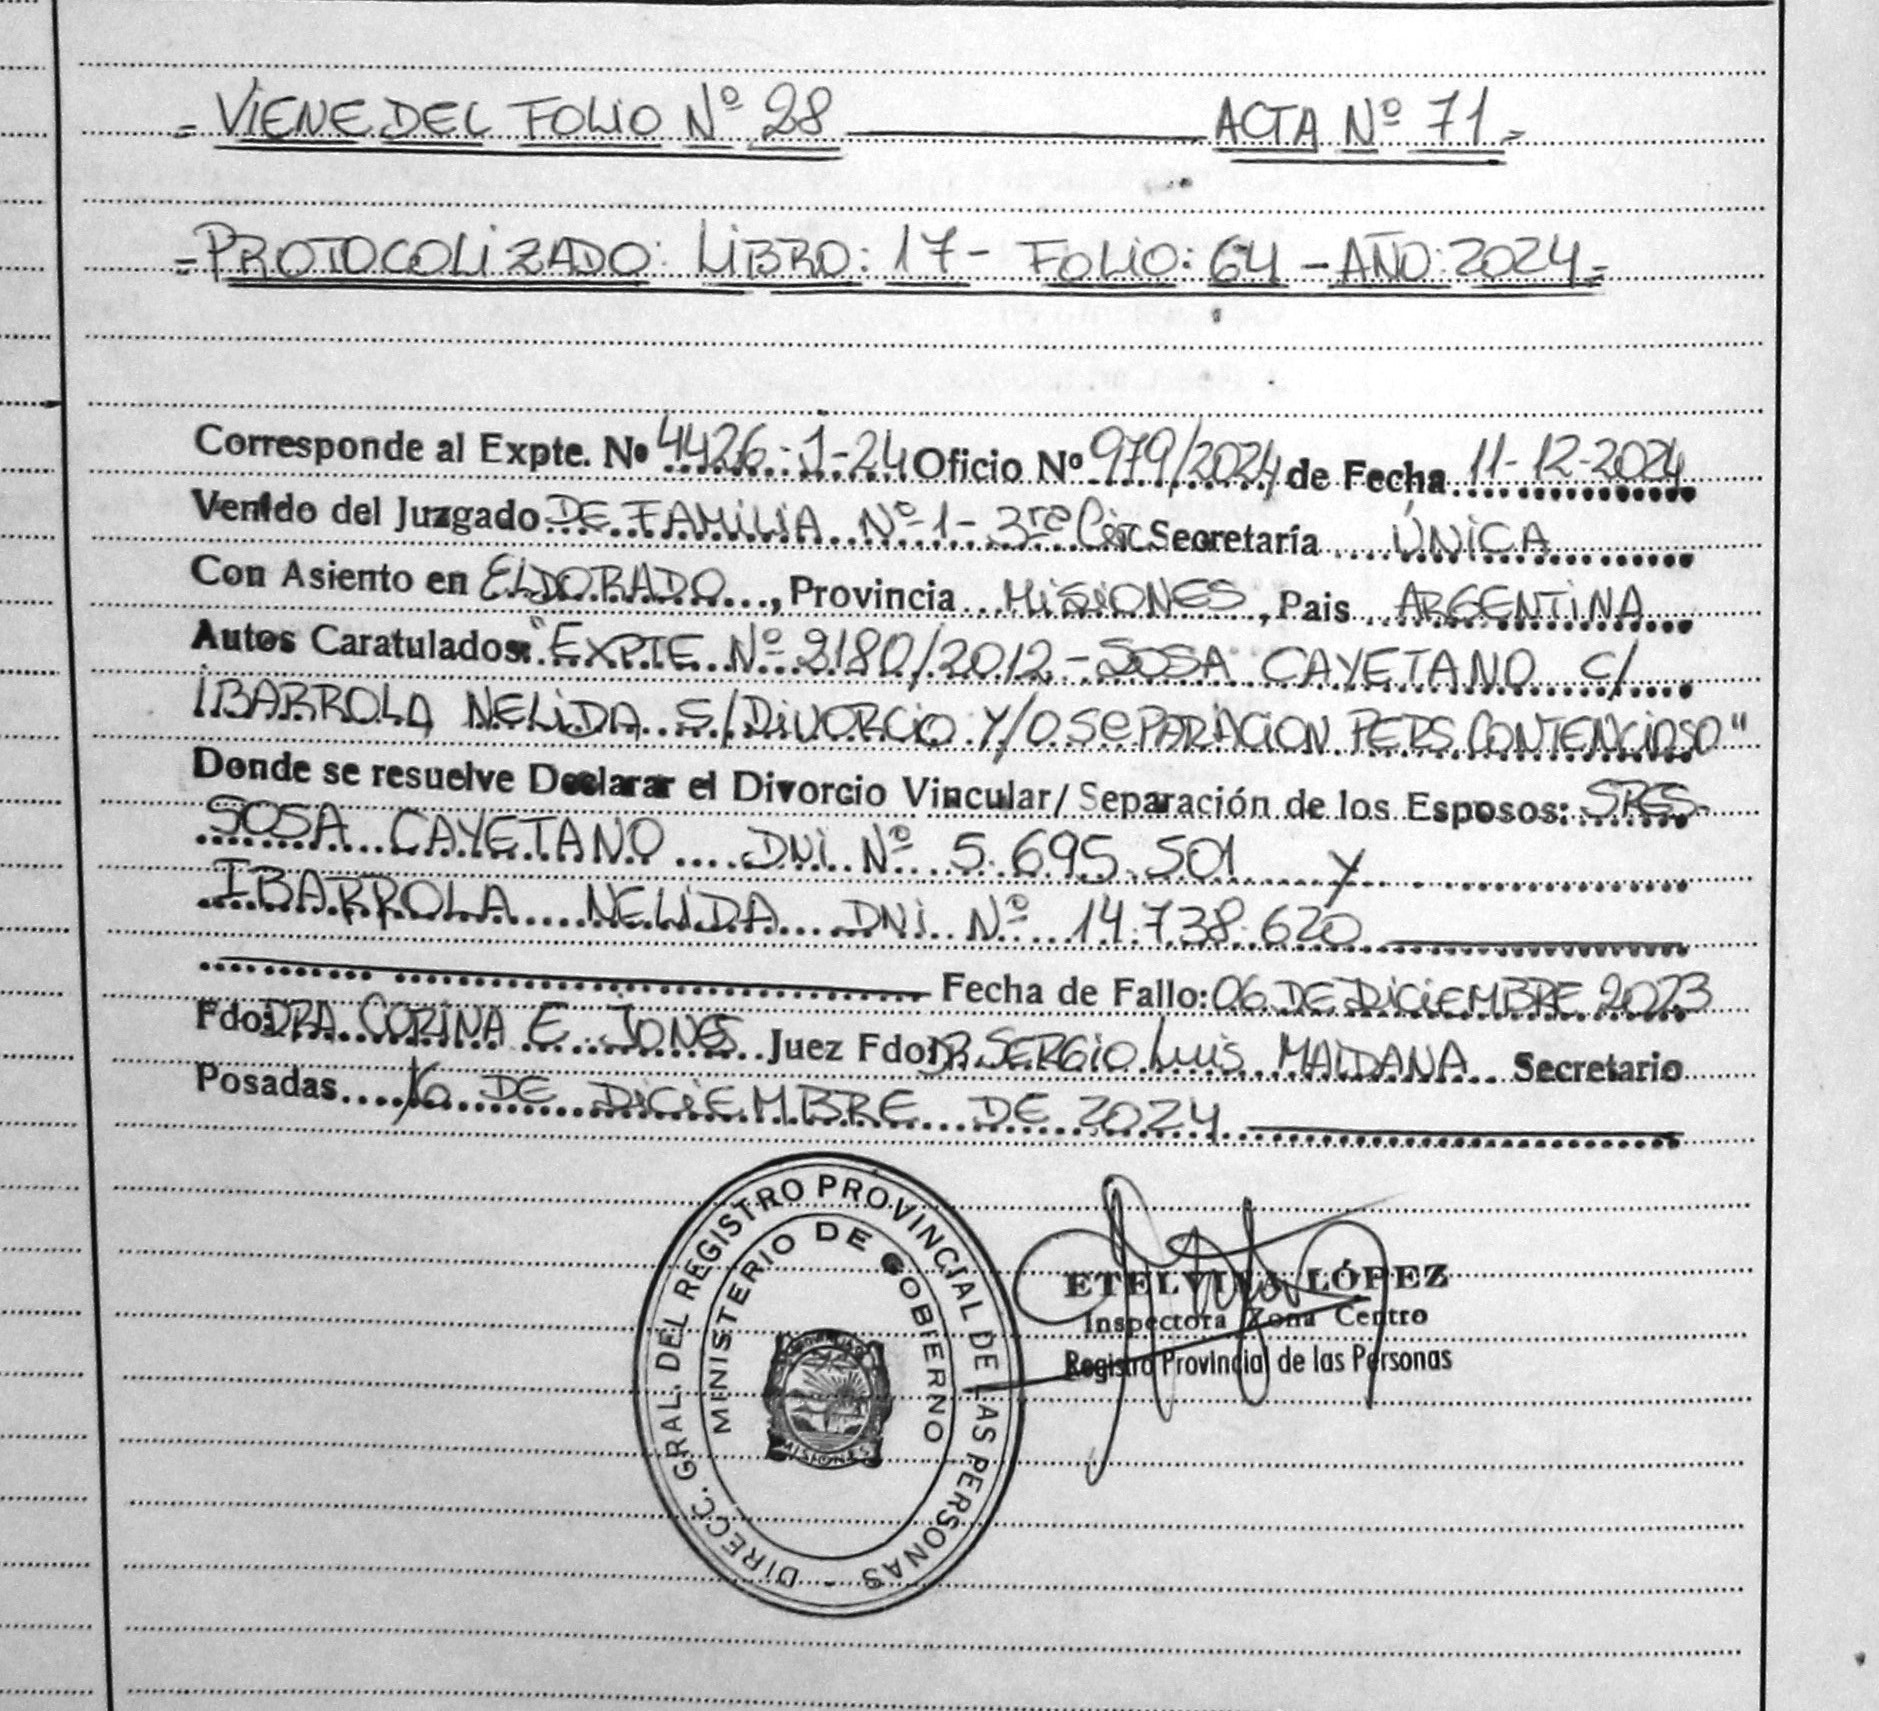 = VIENE DEL FOLIO Nº 28 ——— ACTA Nº 71 =
= PROTOCOLIZADO: LIBRO: 17 - FOLIO: 64 - AÑO: 2024 =
Corresponde al Expte. Nº 4426-1-24 Oficio Nº 979/2024 de Fecha 11-12-2024
Venido del Juzgado DE FAMILIA Nº 1 - 3ra Cir. Secretaría ÚNICA
Con Asiento en ELDORADO, Provincia MISIONES, Pais ARGENTINA
Autos Caratulados: "EXPTE Nº 2180/2012 - SOSA CAYETANO C/
IBARROLA NELIDA S/ DIVORCIO Y/O SEPARACION PERS. CONTENCIOSO"
Donde se resuelve Declarar el Divorcio Vincular/ Separación de los Esposos: SRES.
SOSA CAYETANO DNI Nº 5.695.501 Y
IBARROLA NELIDA DNI Nº 14.738.620
Fecha de Fallo: 06 DE DICIEMBRE 2023
Fdo: DRA. CORINA E. JONES Juez Fdo: DR. SERGIO LUIS MAIDANA Secretario
Posadas 16 DE DICIEMBRE DE 2024
DIRECC. GRAL. DEL REGISTRO PROVINCIAL DE LAS PERSONAS -
MINISTERIO DE GOBIERNO
MISIONES
ETELVINA LÓPEZ
Inspectora Zona Centro
Registro Provincial de las Personas